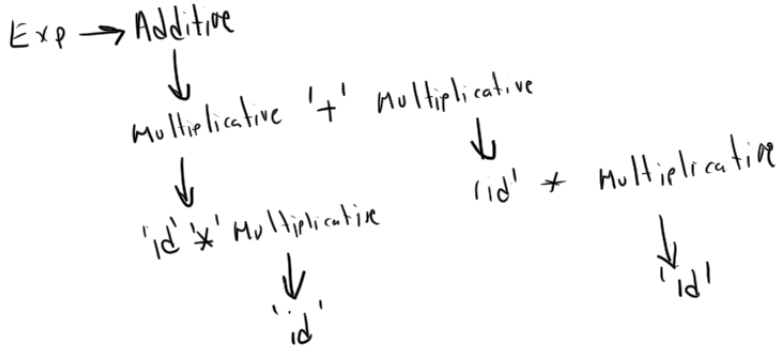 Exp → Additive
Multiplicative '+' Multiplicative
'id' '*' Multiplicative
'id' * Multiplicative
'id'
'id'